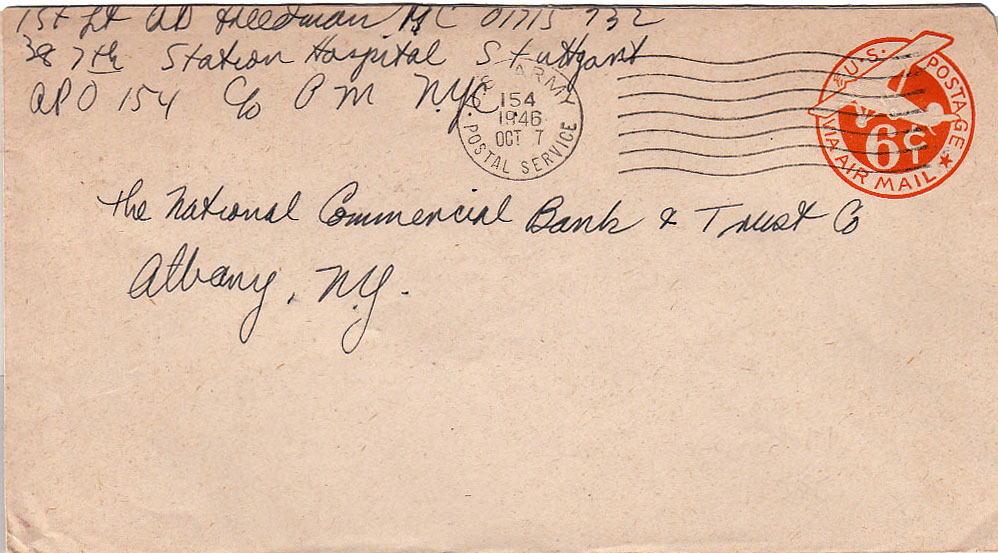 1st Lt AD Freedman, MC 01715732
387th Station Hospital Stuttgart
APO 154 c/o P M NYC.
U.S. ARMY
154
1946
OCT 7
POSTAL SERVICE
U.S. POSTAGE
6¢
VIA AIR MAIL
the National Commercial Bank & Trust Co
Albany, N.Y.